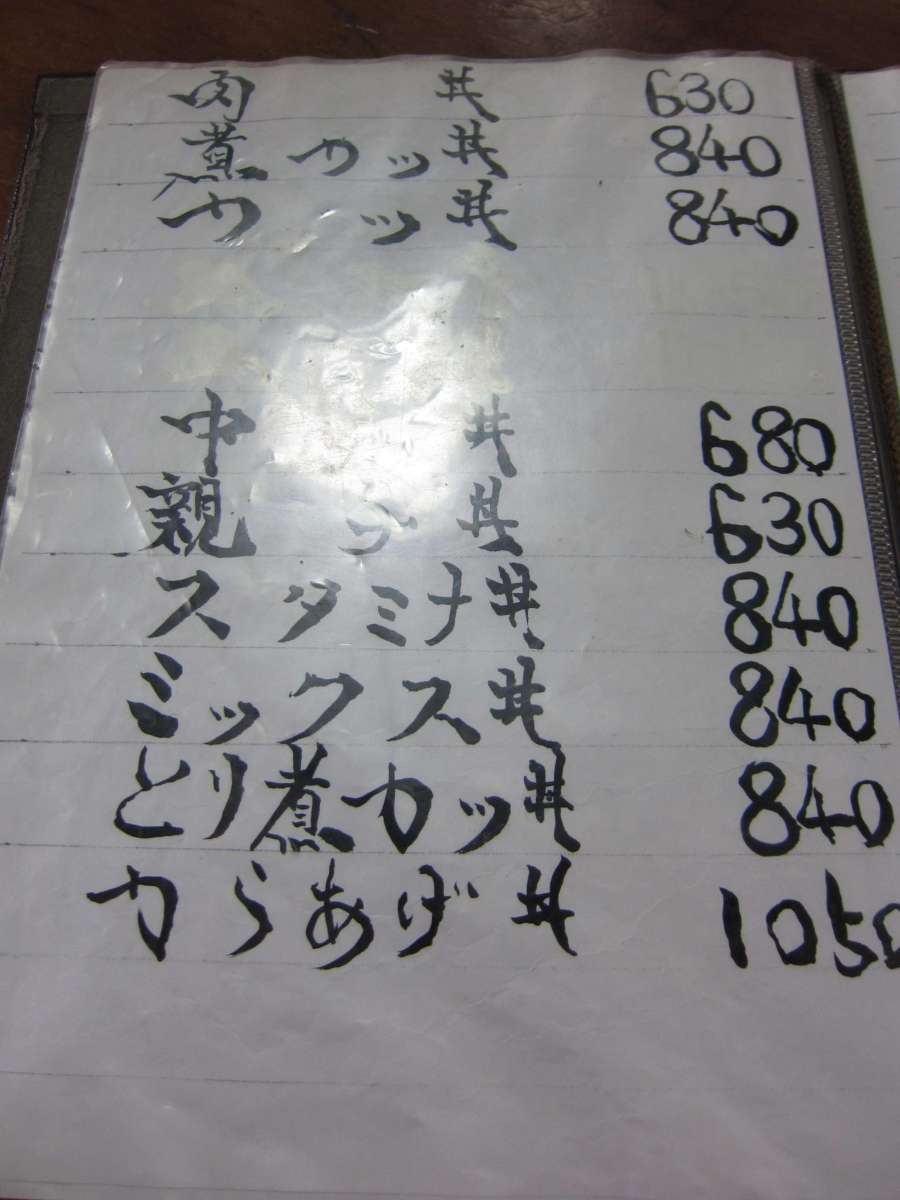 肉 丼 630
煮カツ丼 840
カツ丼 840
中 丼 680
親子丼 630
スタミナ丼 840
ミックス丼 840
とり煮カツ丼 840
からあげ丼 1050